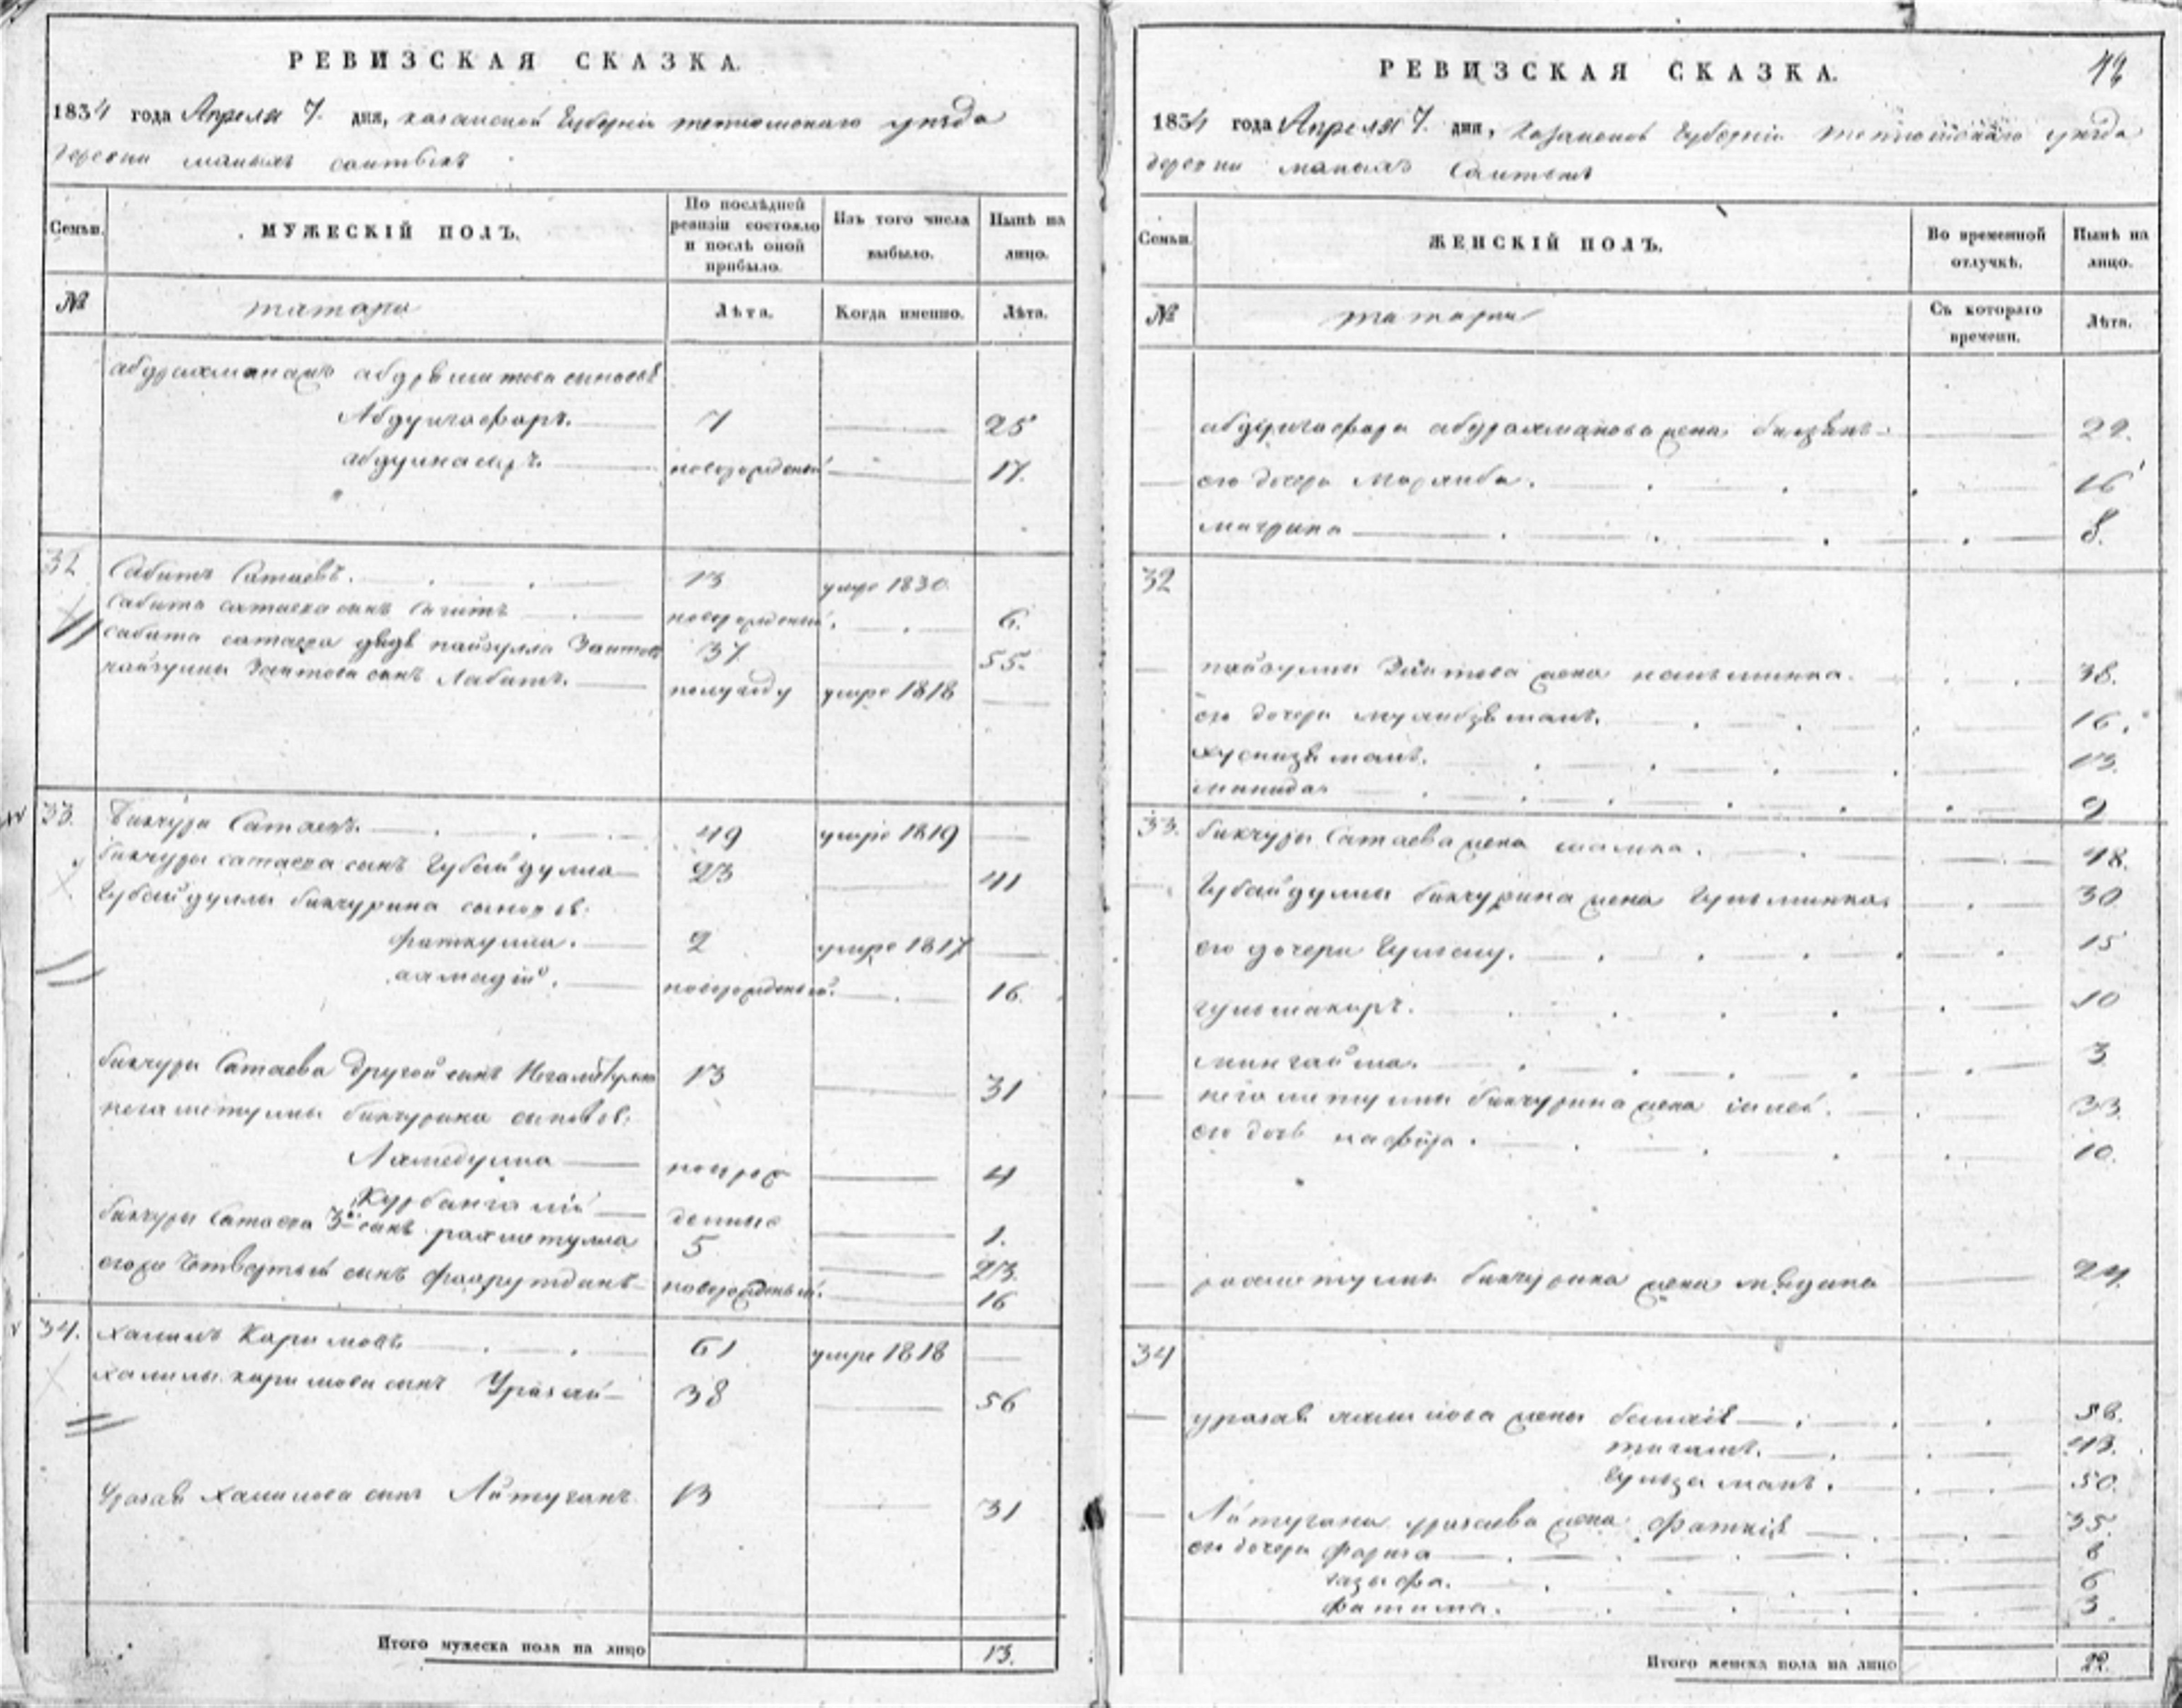 РЕВИЗСКАЯ СКАЗКА.
1834 года Апреля 7. дня, казанской Губернии тетюшскаго уезда
деревни малыхъ саитовых
Семьи.
МУЖЕСКІЙ ПОЛЪ.
По послѣдней ревизіи состояло и послѣ оной прибыло.
Изъ того числа выбыло.
Нынѣ на лицо.
№
татары
Лѣта.
Когда именно.
Лѣта.
абдрахмана абдряшитова сыновья
Абдулгафаръ. 7 25
абдулнасыръ. новорожденый 17.
32 Сабитъ Сатаевъ. 13 умре 1830
сабита сатаева сынъ Сагитъ новорожденый. 6.
сабита сатаева дядя файзулла Заитовъ 37 55.
файзуллы Заитова сынъ Лабитъ. полугоду умре 1818
33. Бикчура Сатаевъ. 49 умре 1819
бикчуры сатаева сынъ Губайдулла 23 41
Губайдуллы бикчурина сыновья:
фаткулла. 2 умре 1817
ахмадій. новорожденый. 16.
бикчуры Сатаева другой сынъ Негаматулла 13 31
негаматуллы бикчурина сыновья:
Ахмедулла новорож 4
Курбангалій денные 1.
бикчуры Сатаева 3й сынъ рахматулла 5 23.
егоже Четвертый сынъ фахрутдинъ новорожденый. 16
34. Халилъ Каримовъ 61 умре 1818
халилы каримова сынъ Уразай 38 56
Уразая Халилова сынъ Айтуганъ 13 31
Итого мужеска пола на лицо 13.
РЕВИЗСКАЯ СКАЗКА.
42
1834 года Апреля 7. дня, Казанской Губернии тетюшскаго уезда
деревни малыхъ Саитовых
Семьи.
ЖЕНСКІЙ ПОЛЪ.
Во временной отлучкѣ.
Нынѣ на лицо.
№
татары
Съ котораго времени.
Лѣта.
абдулгафара абдрахманова жена 22.
его дочери Мархиба. 16
магрипа 8.
32
файзуллы Заитова жена 38.
его дочери 16.
хуснизямалъ. 13.
9
33. бикчуры Сатаева жена 48.
Губайдуллы бикчурина жена Гульминка. 30
его дочери Гульсилу. 15
гульшакаръ. 10
мингайша. 3
негаматуллы бикчурина жена 33.
его дочь нафиза. 10.
рахматуллы бикчурина жена мядина 24.
34
уразая халилова жены 58.
43.
Гульзаманъ. 50.
Айтугана уразаева жена фаткія 35.
его дочери фариза 8
газыфа. 6
фатима. 3.
Итого женска пола на лицо 22.